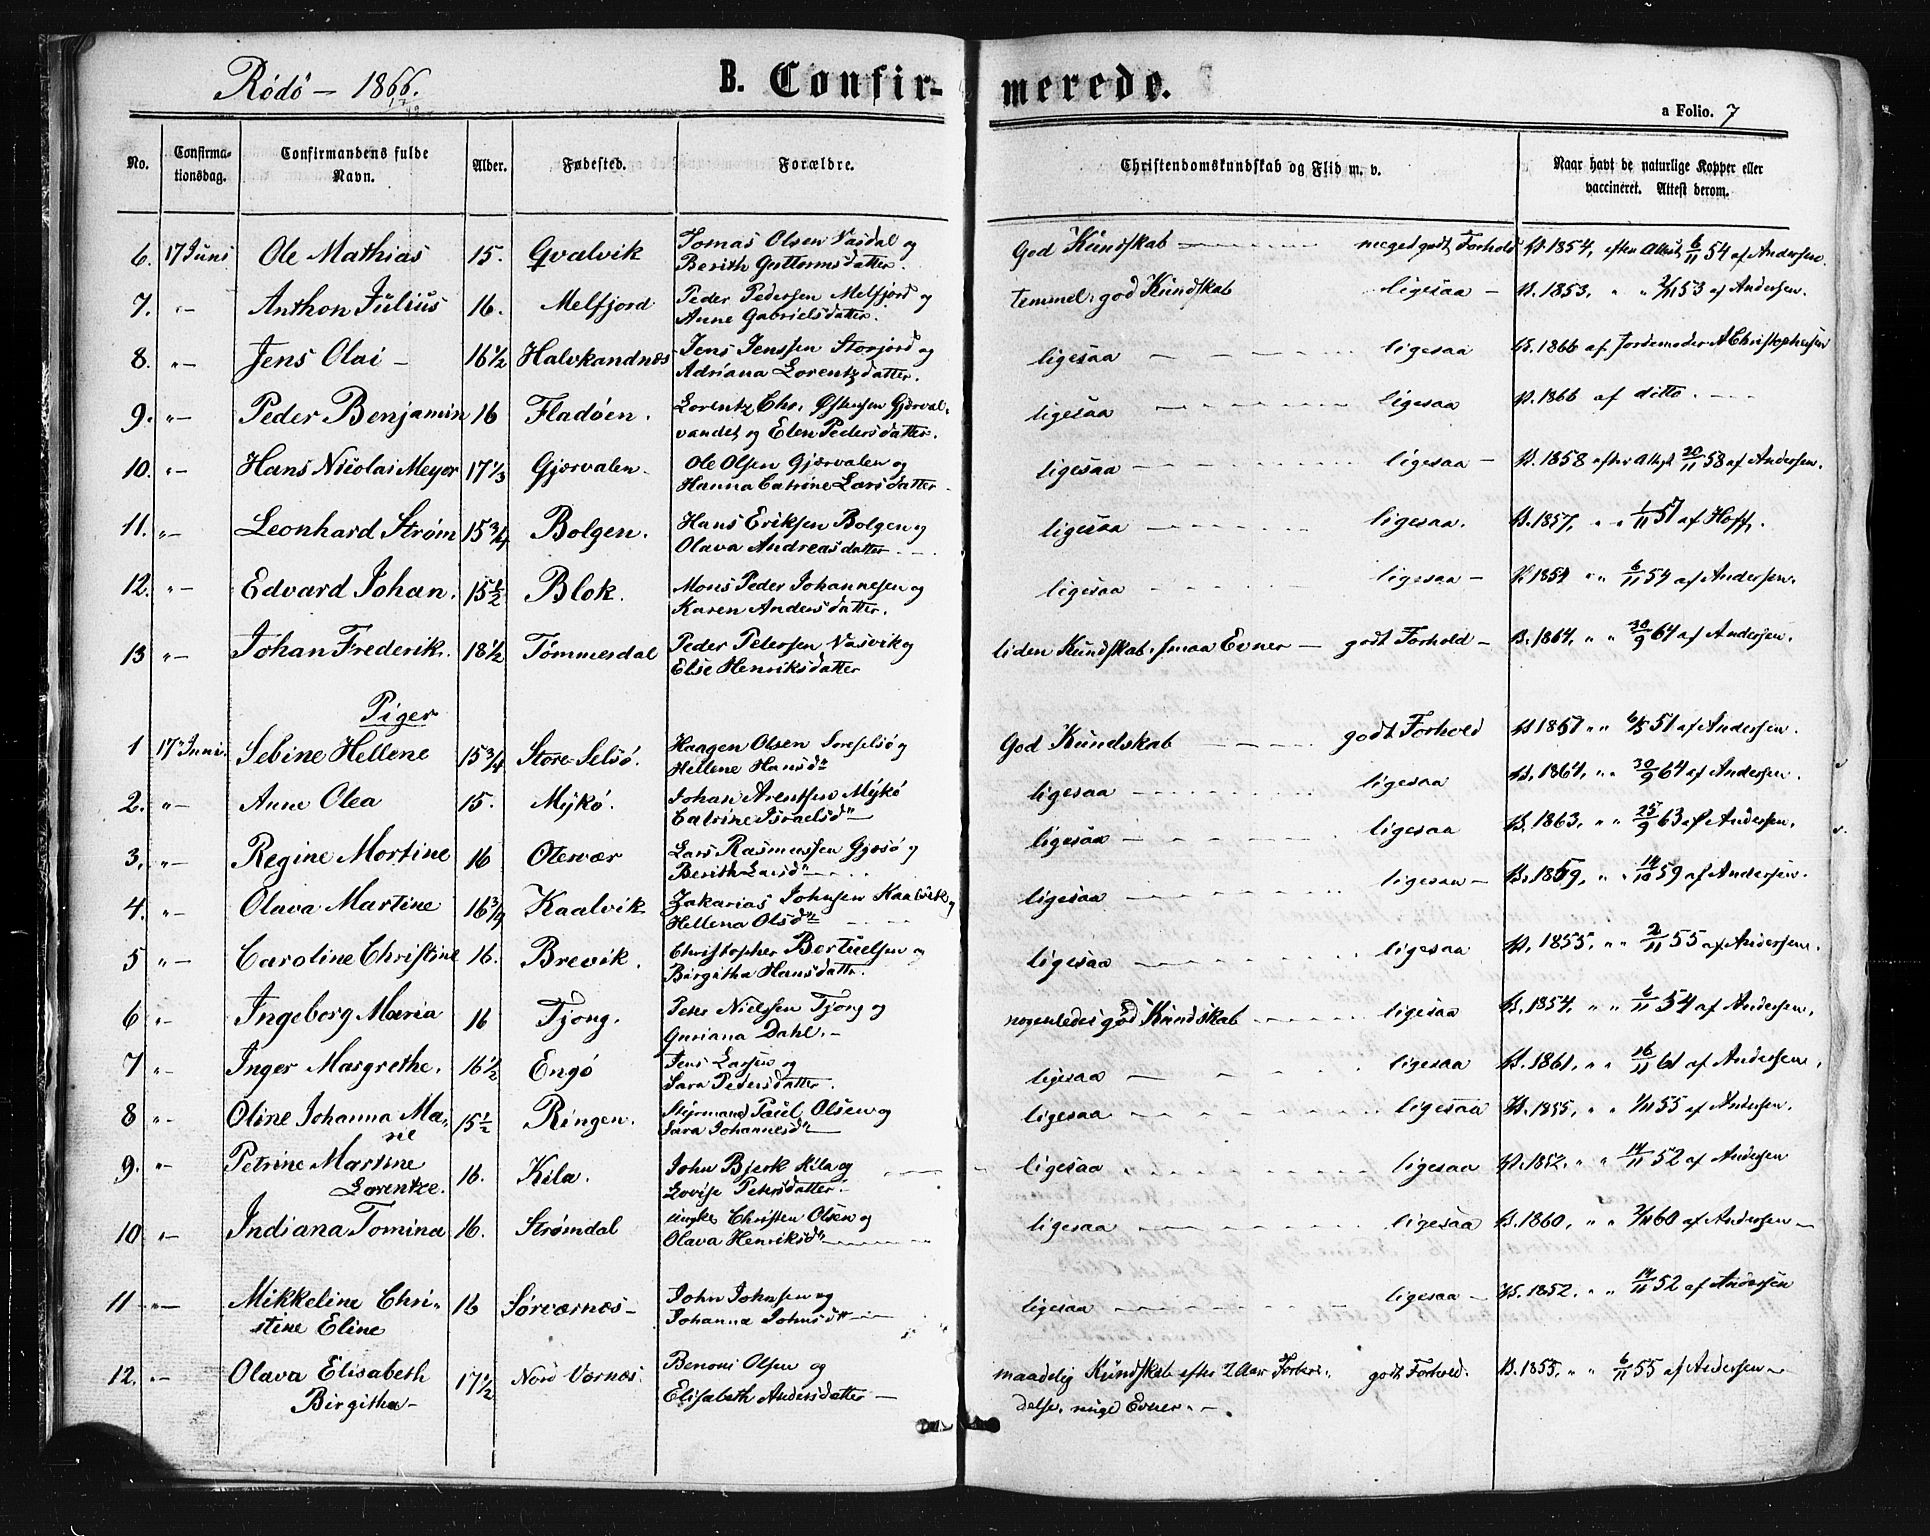 Rødø – 1866.
B. Confir-
merede.
a Folio. 7
No. Confirma-tionsdag. Confirmandens fulde Navn. Alder. Fødested. Forældre. Christendomskundskab og Flid m. v. Naar havt de naturlige Kopper eller vaccineret. Attest derom.
6. 17 Juni Ole Mathias 15. Qvalvik Tomas Olsen Vasdal og God Kundskab meget godt Forhold V. 1854, efter Attest 6/11 54 af Andersen.
Berith Guttormsdatter.
7. "– Anthon Julius 16. Melfjord Peder Pedersen Melfjord og temmel. god Kundskab ligesaa – V. 1853, " " 2/11 53 af Andersen.
Anne Gabrielsdatter.
8. "– Jens Olai – 16 1/2 Halvkandnæs Jens Jenssen Storjord og ligesaa ligesaa V. 1866 af Jordemoder A Christophersen
Adriana Lorentzdatter.
9. "– Peder Benjamin 16 Fladøen. Lorentz Chr. Østensen Gjerval- ligesaa ligesaa V. 1866 af ditto.
vandet og Elen Pedersdatter.
10. "– Hans Nicolai Meyer 17 1/3 Gjervalen. Ole Olsen Gjærvalen og ligesaa ligesaa – V. 1858 efter Attest 20/11 58 af Andersen.
Hanna Catrine Larsdatter
11. "– Leonhard Strøm 15 3/4 Bolgen. Hans Eriksen Bolgen og ligesaa ligesaa. V. 1857, " " 1/11 57 af Hoff.
Olava Andreasdatter
12. "– Edvard Johan. 15 1/2 Blok. Mons Peder Johannesen og ligesaa ligesaa – V. 1854 " " 6/11 54 af Andersen.
Karen Andersdatter.
13 "– Johan Frederik. 18 1/2 Tømmerdal Peder Petersen Vasvik og liden Kundskab, smaa Evner – godt Forhold – V. 1864, " " 30/9 64 af Andersen.
Else Henriksdatter
Piger
1 17 Juni. Sebine Hellene 15 3/4 Store-Selsø. Haagen Olsen Soreselsø og God Kundskab godt Forhold V. 1851 " " 6/5 51 af Andersen.
Hellene Hansd
2. "– Anne Olea 15. Mykø. Johan Arentsen Mykø ligesaa ligesaa V. 1864, " " 30/9 64 af Andersen.
Catrine Israelsd
3. "– Regine Mortine 16 Otervær Lars Rasmussen Gjesø og ligesaa ligesaa V. 1863, " " 25/9 63 af Andersen.
Berith Larsd
4. "– Olava Martine 16 3/4 Kaalvik Zakarias Johnsen Kaalvik og ligesaa ligesaa – V. 1859, " " 14/10 59 af Andersen.
Hellena Olsd
5 "– Caroline Christine 16. Brevik. Christopher Bertuelsen og ligesaa ligesaa V. 1855, " " 2/11 55 af Andersen.
Birgitha Hansdattr.
6 "– Ingeborg Maria 16 Tjong. Peter Nielsen Tjong og nogenledes god Kundskab ligesaa V. 1854, " " 6/11 54 af Andersen.
Guriana Dahl.
7 "– Inger Margrethe. 16 1/2 Engø Jens Larsen og ligesaa ligesaa V. 1861, " " 16/11 61 af Andersen.
Sara Pedersdatter.
8 "– Oline Johanna Ma- 15 1/2 Ringen. Styrmand Paul Olsen og ligesaa ligesaa V. 1855, " " 2/11 55 af Andersen.
rie Sara Johannesd
9. "– Petrine Martine 16. Kila. John Bjerk Kila og ligesaa ligesaa V. 1852, " " 14/11 52 af Andersen
Lorentze. Lovise Petersdatter.
10 "– Indiana Tomina 16. Strømdal ungke Christen Olsen og ligesaa ligesaa V. 1860, " " 2/11 60 af Andersen –
Olava Henriksd
11 "– Mikkeline Chri- 16 Sørværnæs – John Johnsen og ligesaa ligesaa – V. 1852. " " 14/11 52 af Andersen
stine Eline Johanna Johnsd
12. "– Olava Elisabeth 17 1/2 Nord Værnæs. Benoni Olsen og maadelig Kundskab efter 2 Aar Forbere- godt Forhold. V. 1855, " " 6/11 55 af Andersen –
Birgitha – Elisabeth Andersdatter – delse, ringe Evner. –